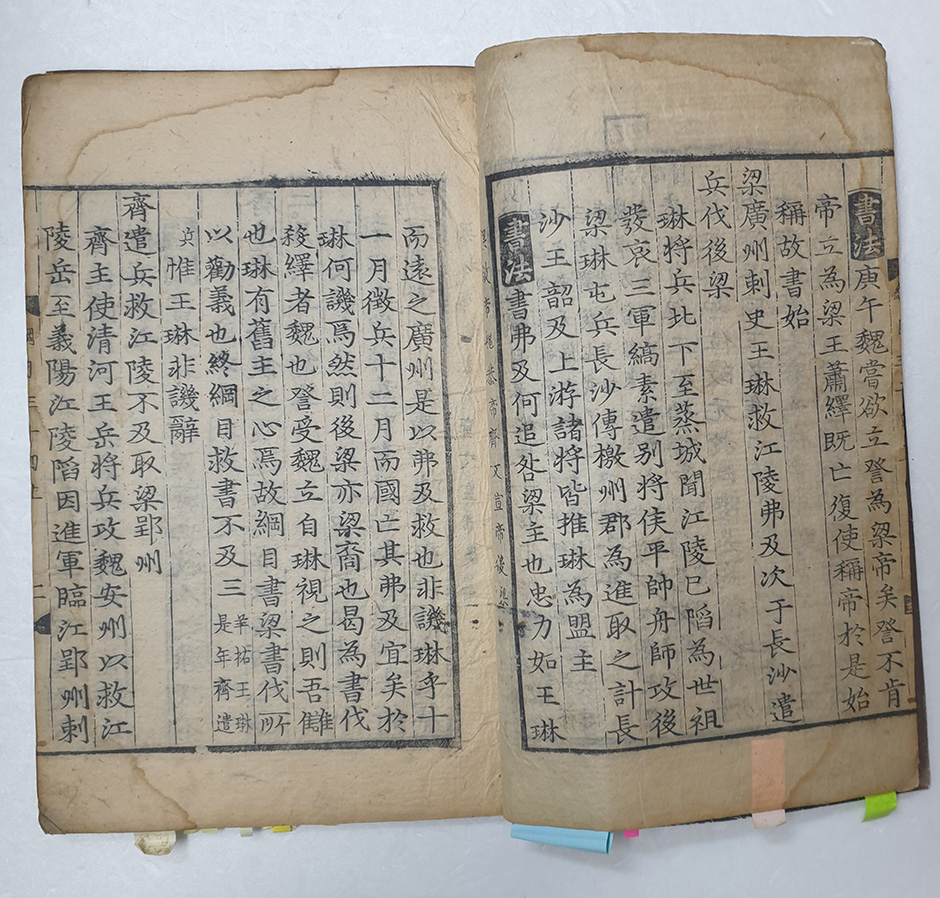 書法庚午魏嘗欲立詧為梁帝矣詧不肯
帝立為梁王蕭繹既亡復使稱帝於是始
稱故書始
梁廣州刺史王琳救江陵弗及次于長沙遣
兵伐後梁
琳將兵北下至蒸城聞江陵已陷為世祖
發哀三軍縞素遣別將侯平帥舟師攻後
梁琳屯兵長沙傳檄州郡為進取之計長
沙王韶及上游諸將皆推琳為盟主
書法書弗及何追咎梁主也忠力如王琳
而遠之廣州是以弗及救也非譏琳乎十
一月徵兵十二月而國亡其弗及宜矣於
琳何譏焉然則後梁亦梁裔也曷為書伐
殺繹者魏也詧受魏立自琳視之則吾讎
也琳有舊主之心焉故綱目書梁書伐所
以勸義也終綱目救書不及三
是年齊遣
兵惟王琳非譏辭
齊遣兵救江陵不及取梁郢州
齊主使清河王岳將兵攻魏安州以救江
陵岳至義陽江陵陷因進軍臨江郢州刺